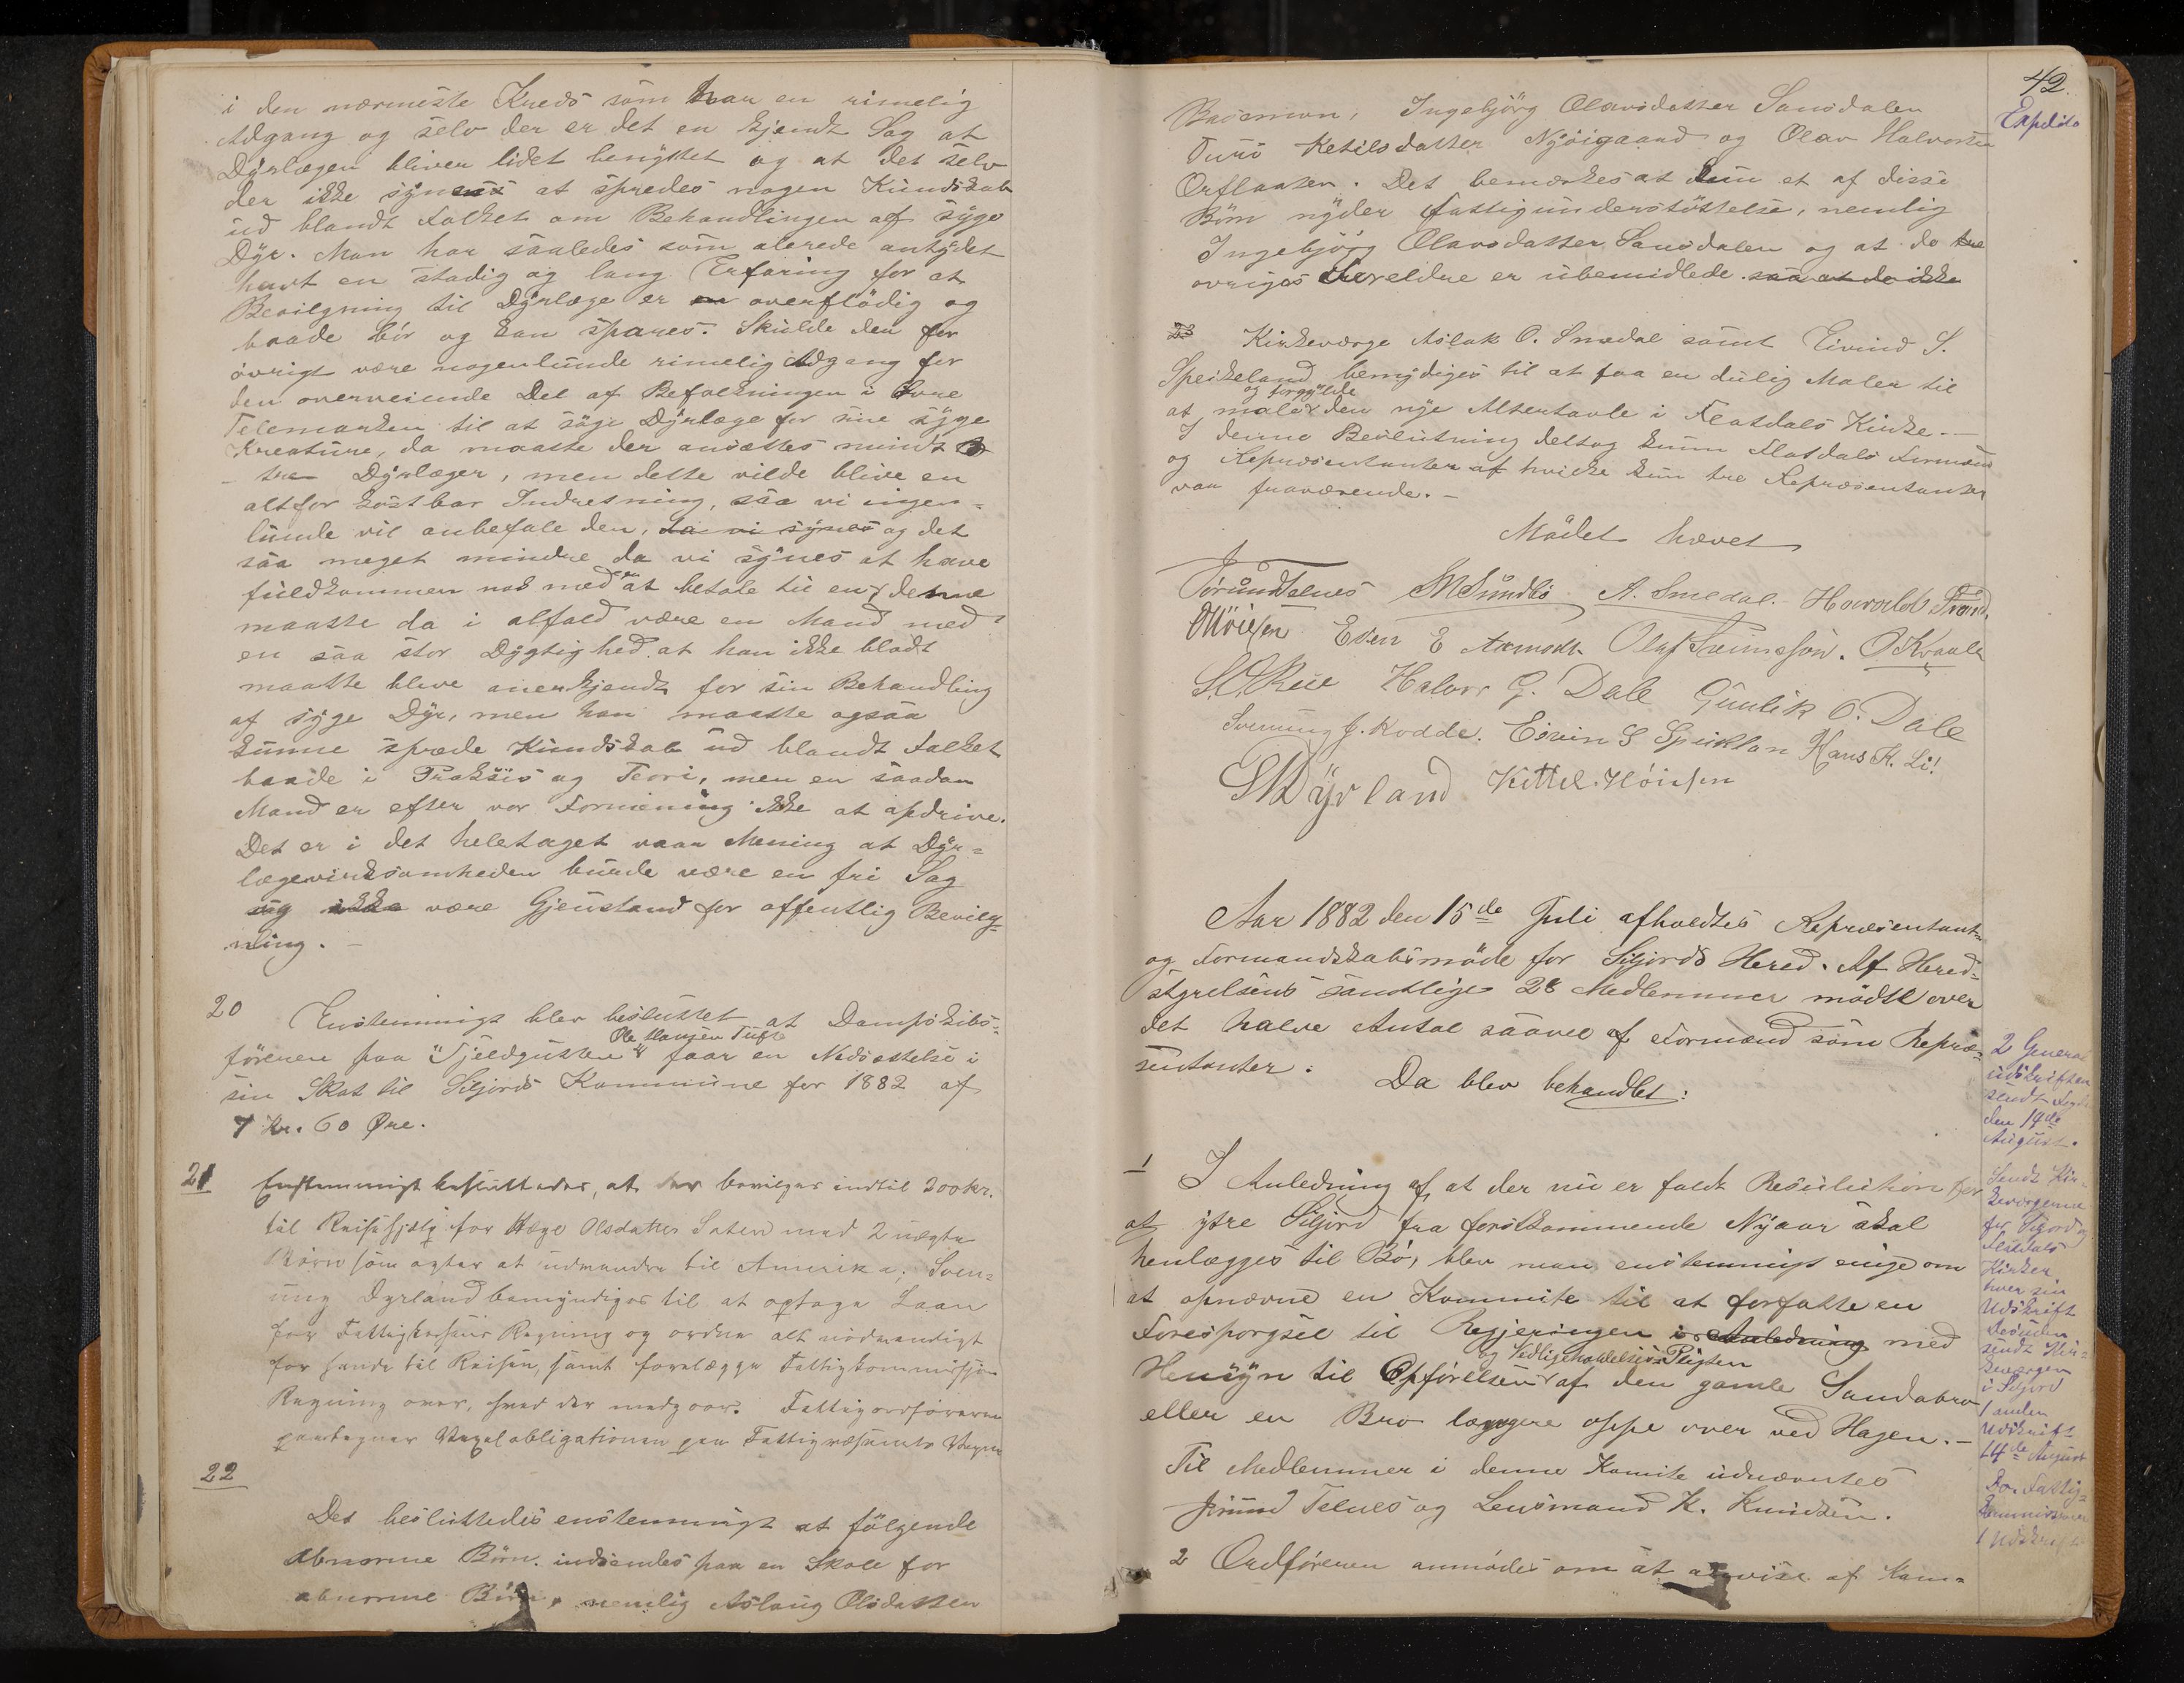 i den nærmeste Kreds som har en rimelig
Adgang og selv der er det en kjendt Sag at
Dyrlægen bliver lidet benyttet og at det selv
der ikke synes at spredes nogen Kundskab
ud blandt Folket om Behandlingen af syge
Dyr. Man har saaledes som alerede antydet
havt en stadig og lang Erfaring for at
Bevilgning til Dyrlæge er overflödig og
baade bör og kan spares. Skulde der for
övrigt være nogenlunde rimelig Adgang for
den overveiende Del af Befolkningen i Övre
Telemarken til at söge Dyrlæge for sine syge
Kreature, da maatte der ansættes mindst
tre Dyrlæger, men dette vilde blive en
altfor kostbar Indretning, saa vi ingen-
lunde vil anbefale den, da vi synes og det
saa meget mindre da vi synes at have
fuldkommen nok med at betale til en, denne
maatte da i alfald være en Mand med
en saa stor Dygtighed at han ikke blodt
maatte bleve anerkjendt for sin Behandling
af syge Dyr, men han maatte ogsaa
kunne sprede Kundskab ud blandt Folket
baade i Praksis og Teori, men en saadan
Mand er efter vor Formening ikke at opdrive.
Det er i det heletaget vaar Mening at Dyr-
lægevirksomheden burde være en fri Sag
og ikke være Gjenstand for offentlig Bevilg-
ning. –
20 Enstemmigt blev besluttet at Dampskibs-
Ole Hansen Tufte
föreren paa "Fjeldgutten" faar en Nedsættelse i
sin Skat til Siljords Kommune for 1882 af
7 Kr. 60 Øre.
21 Enstemmigt besluttedes, at der bevilges indtil 200 kr.
til Reisehjælp for Hæge Olsdatter Saten med 2 uægte
Börn som agter at udvandre til Amerika; Sven-
ung Dyrland bemyndiges til at optage Laan
for Fattigkassens Regning og ordne alt nödvendigt
for hende til Reisen, samt forelægge Fattigkommissjon
Regning over, hvad der medgaar. Fattigordföreren
paategner Vexelobligationen paa Fattigvæsenets Vegne
22
Det besluttedes enstemmigt at fölgende
abnorme Börn indsendes paa en Skole for
abnorme Börn, nemlig Aslaug Olsdatter
42.
Expedito
Ingebjörg Olavsdatter Sandsdalen
Turi Ketilsdatter Nyöigaard og Olav Halvorsen
Orflaaten. Det bemærkes at kun et af disse
Börn nyder Fattigunderstöttelse, nemlig
Ingebjörg Olavsdatter Sandsdalen og at de tre
övriges Forældre er ubemidlede saa at de ikke
23 Kirkeværge Aslak O. Smedal samt Eivind S.
Speikeland bemydiges til at faa en dulig Maler til
og forgylde
at male den nye Altertavle i Flatdals Kirke. –
I denne Beslutning deltog kuun Flatdals Formænd
og Repræsentanter af hvilke kun tre Repræsentanter
var fraværende. –
Mödet hævet
Jørund Telnes SM Sundbö A. Smedal. Havald Strand.
Even E Aarmodt Olaf Sveinsson. O Kvaale
S. Rue Halvor G. Dale Gunlik O. Dale
Svenung J. Kodde. Eivin S Speiklan Hans K. Li!
SM Dyrland Kittel Höinsen
Aar 1882 den 15de Juli afholdtes Repræsentant-
og Formandskabsmöde for Siljords Hered. Af Hered-
styrelsens samtlige 28 Medlemmer mödte over
det halve Antal saavel af Formænd som Repræ-
sentanter. Da blev behandlet:
1 I Anledning af at der nu er faldt Resulution for
at ytre Siljord fra förstkommende Nyaar skal
henlægges til Bö, blev man enstemmigt enige om
at opnævne en Kommite til at forfatte en
Forespörgsel til Regjeringen i Anledning med
og Vedligeholdelses Pligten
Hensyn til Opförelsen af den gamle Sundabro
eller en Bro længere oppe over ved Hagen. –
Til Medlemmer i denne Komite udnævntes
Jörund Telnes og Lensmand K. Knudsen.
2 Ordföreren anmodes om at anvise af Kom-
2 General
udskrifter
sendt
den 19de
August.
Sendt Kir-
keværgerne
for Siljord og
Flatdals
Kirker
hver sin
Udskrift
desuden
sendt Kir-
keværgen
i Siljord
1 anden
Udskrift
14de August
Do. Fattig-
kommissionen
1 Udskrift